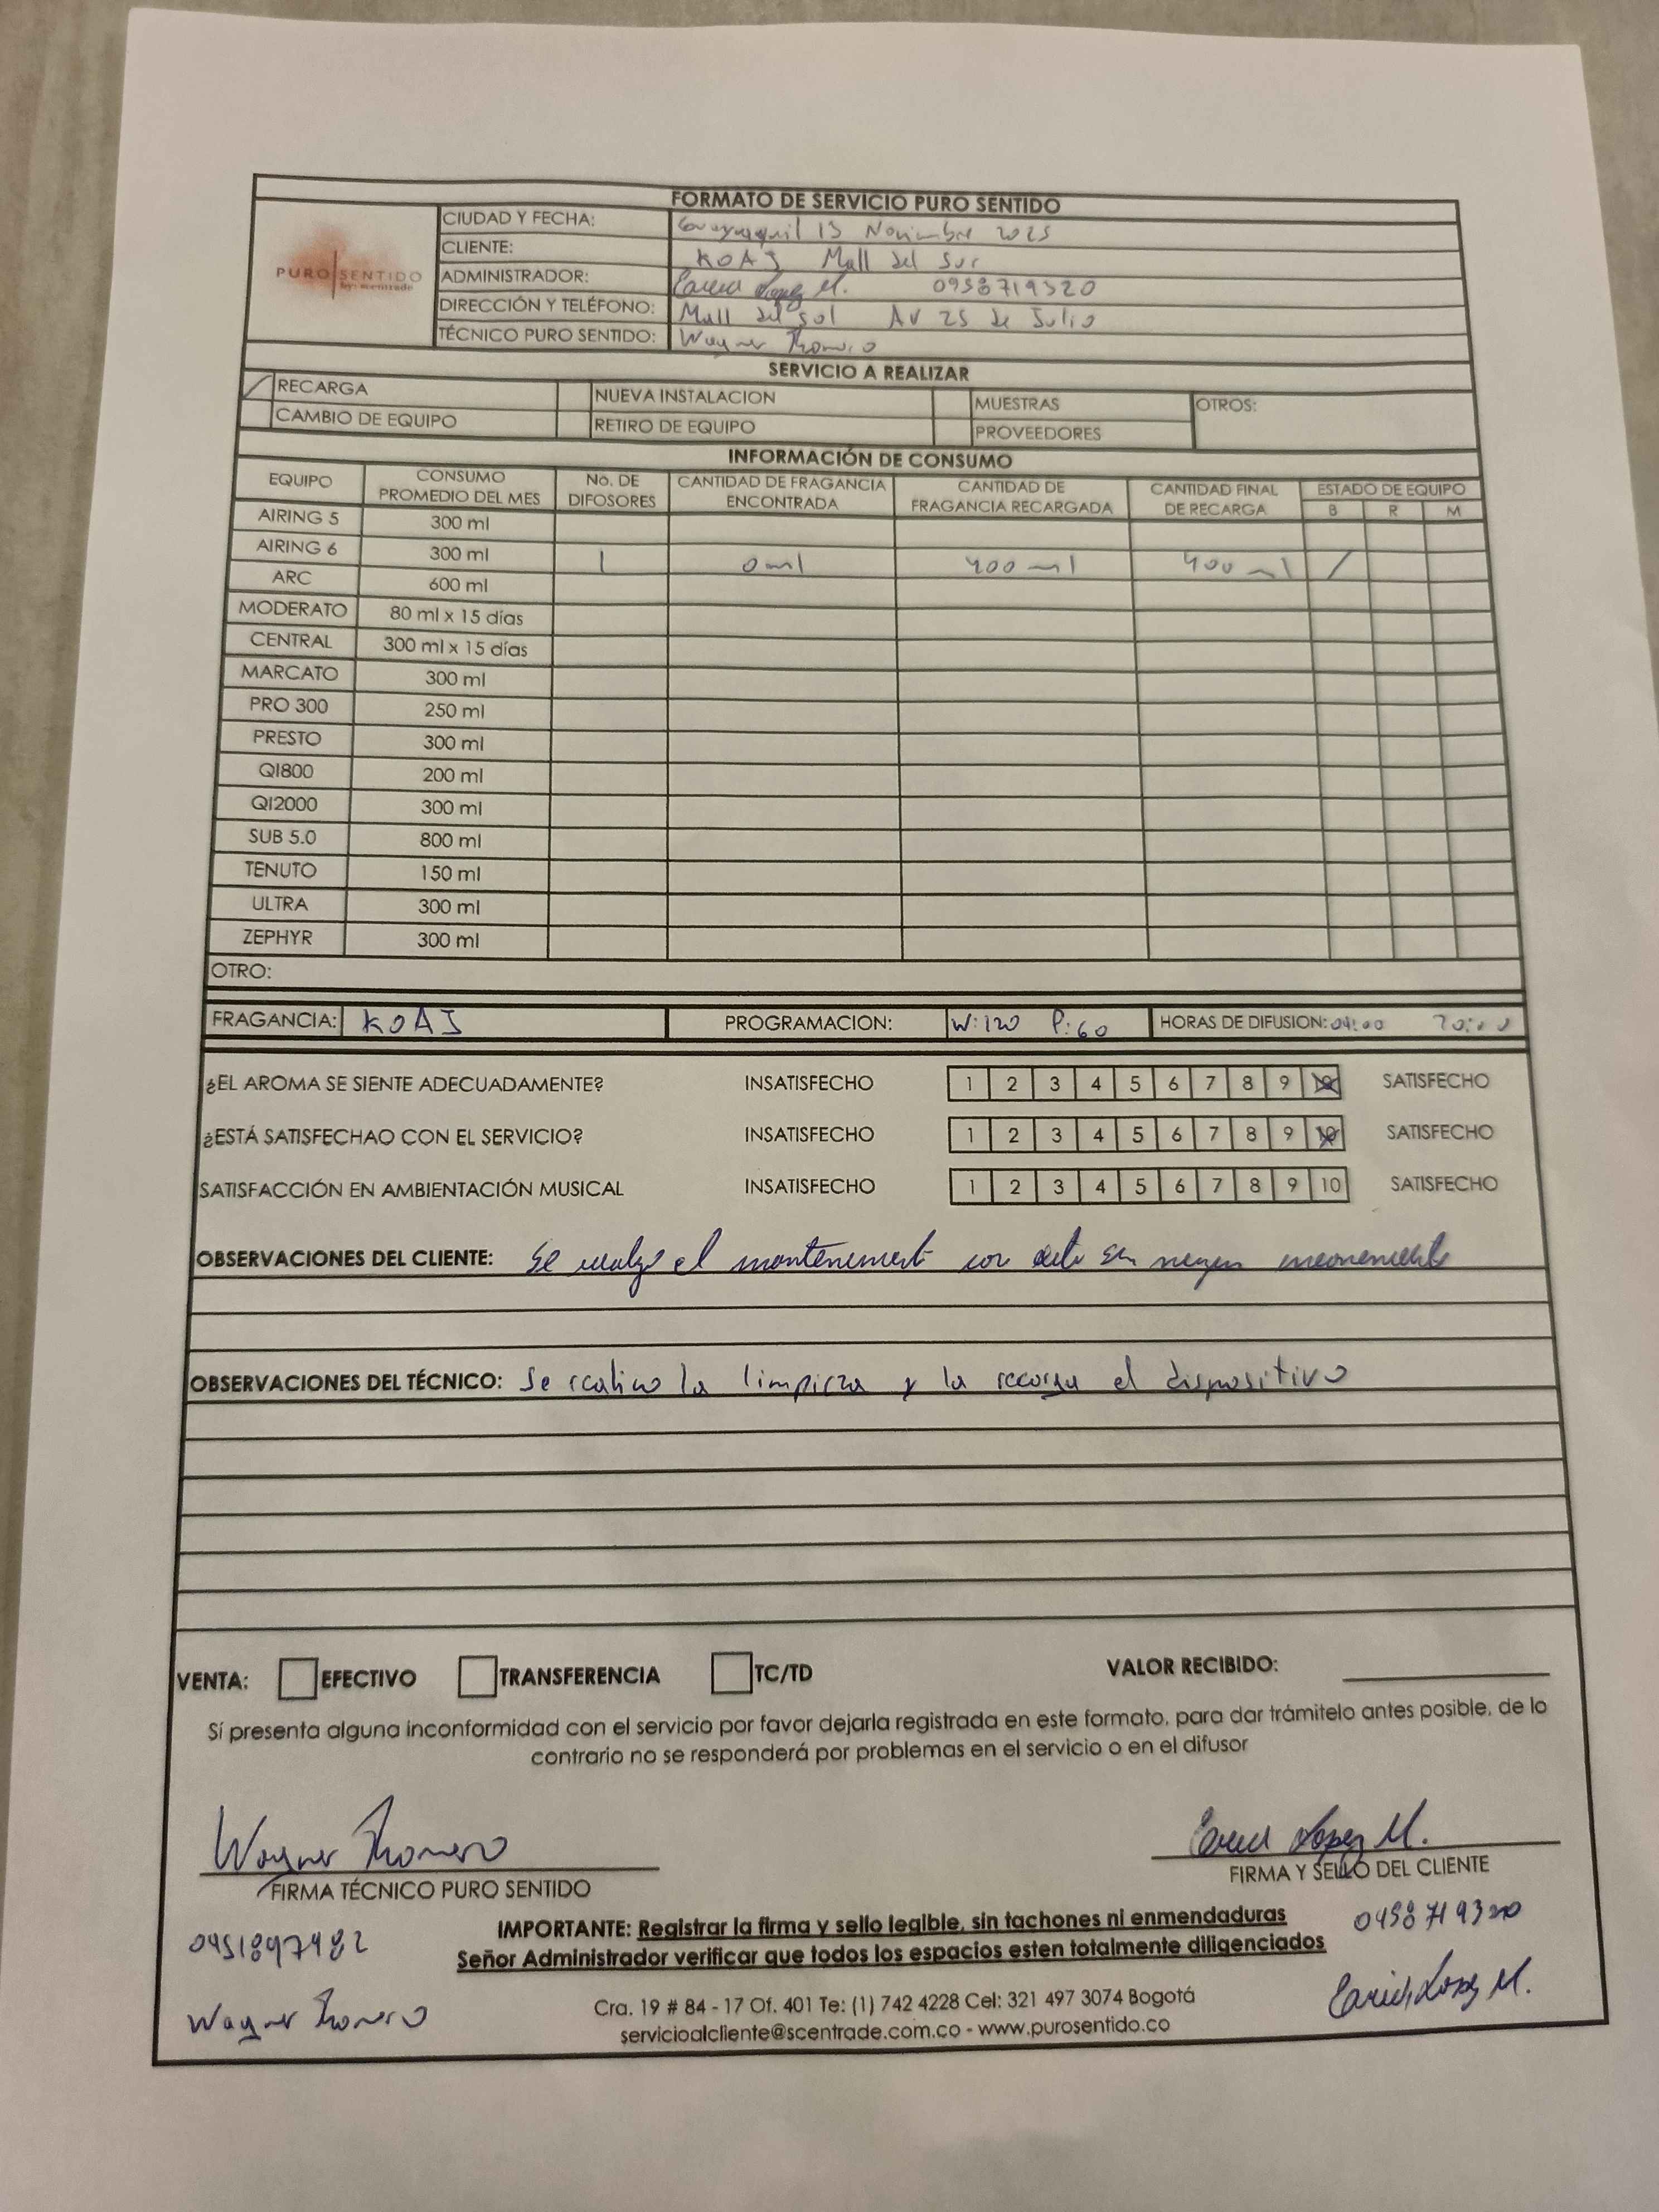 FORMATO DE SERVICIO PURO SENTIDO
PURO SENTIDO
by: scentrade
CIUDAD Y FECHA: Guayaquil 13 Noviembre 2025
CLIENTE: KOAJ Mall del Sur
ADMINISTRADOR: Lopez M. 0958719320
DIRECCIÓN Y TELÉFONO: Mall del sol AV 25 de Julio
TÉCNICO PURO SENTIDO: Wagner Romero
SERVICIO A REALIZAR
RECARGA NUEVA INSTALACION MUESTRAS OTROS:
CAMBIO DE EQUIPO RETIRO DE EQUIPO PROVEEDORES
INFORMACIÓN DE CONSUMO
EQUIPO CONSUMO PROMEDIO DEL MES No. DE DIFOSORES CANTIDAD DE FRAGANCIA ENCONTRADA CANTIDAD DE FRAGANCIA RECARGADA CANTIDAD FINAL DE RECARGA ESTADO DE EQUIPO
B R M
AIRING 5 300 ml
AIRING 6 300 ml 1 0 ml 400 ml 400 ml /
ARC 600 ml
MODERATO 80 ml x 15 días
CENTRAL 300 ml x 15 días
MARCATO 300 ml
PRO 300 250 ml
PRESTO 300 ml
QI800 200 ml
QI2000 300 ml
SUB 5.0 800 ml
TENUTO 150 ml
ULTRA 300 ml
ZEPHYR 300 ml
OTRO:
FRAGANCIA: KOAJ PROGRAMACION: W:120 P:60 HORAS DE DIFUSION: 09:00 20:00
¿EL AROMA SE SIENTE ADECUADAMENTE? INSATISFECHO 1 2 3 4 5 6 7 8 9 10 SATISFECHO
¿ESTÁ SATISFECHAO CON EL SERVICIO? INSATISFECHO 1 2 3 4 5 6 7 8 9 10 SATISFECHO
SATISFACCIÓN EN AMBIENTACIÓN MUSICAL INSATISFECHO 1 2 3 4 5 6 7 8 9 10 SATISFECHO
OBSERVACIONES DEL CLIENTE: Se el con sin
OBSERVACIONES DEL TÉCNICO: Se realizo la limpieza y la recarga el dispositivo
VENTA: EFECTIVO TRANSFERENCIA TC/TD VALOR RECIBIDO:
Sí presenta alguna inconformidad con el servicio por favor dejarla registrada en este formato, para dar trámitelo antes posible, de lo
contrario no se responderá por problemas en el servicio o en el difusor
Wagner Romero Lopez M.
FIRMA TÉCNICO PURO SENTIDO FIRMA Y SELLO DEL CLIENTE
IMPORTANTE: Registrar la firma y sello legible, sin tachones ni enmendaduras
Señor Administrador verificar que todos los espacios esten totalmente diligenciados
0958719320
Cra. 19 # 84 - 17 Of. 401 Te: (1) 742 4228 Cel: 321 497 3074 Bogotá
servicioalcliente@scentrade.com.co - www.purosentido.co
Wagner Romero Lopez M.